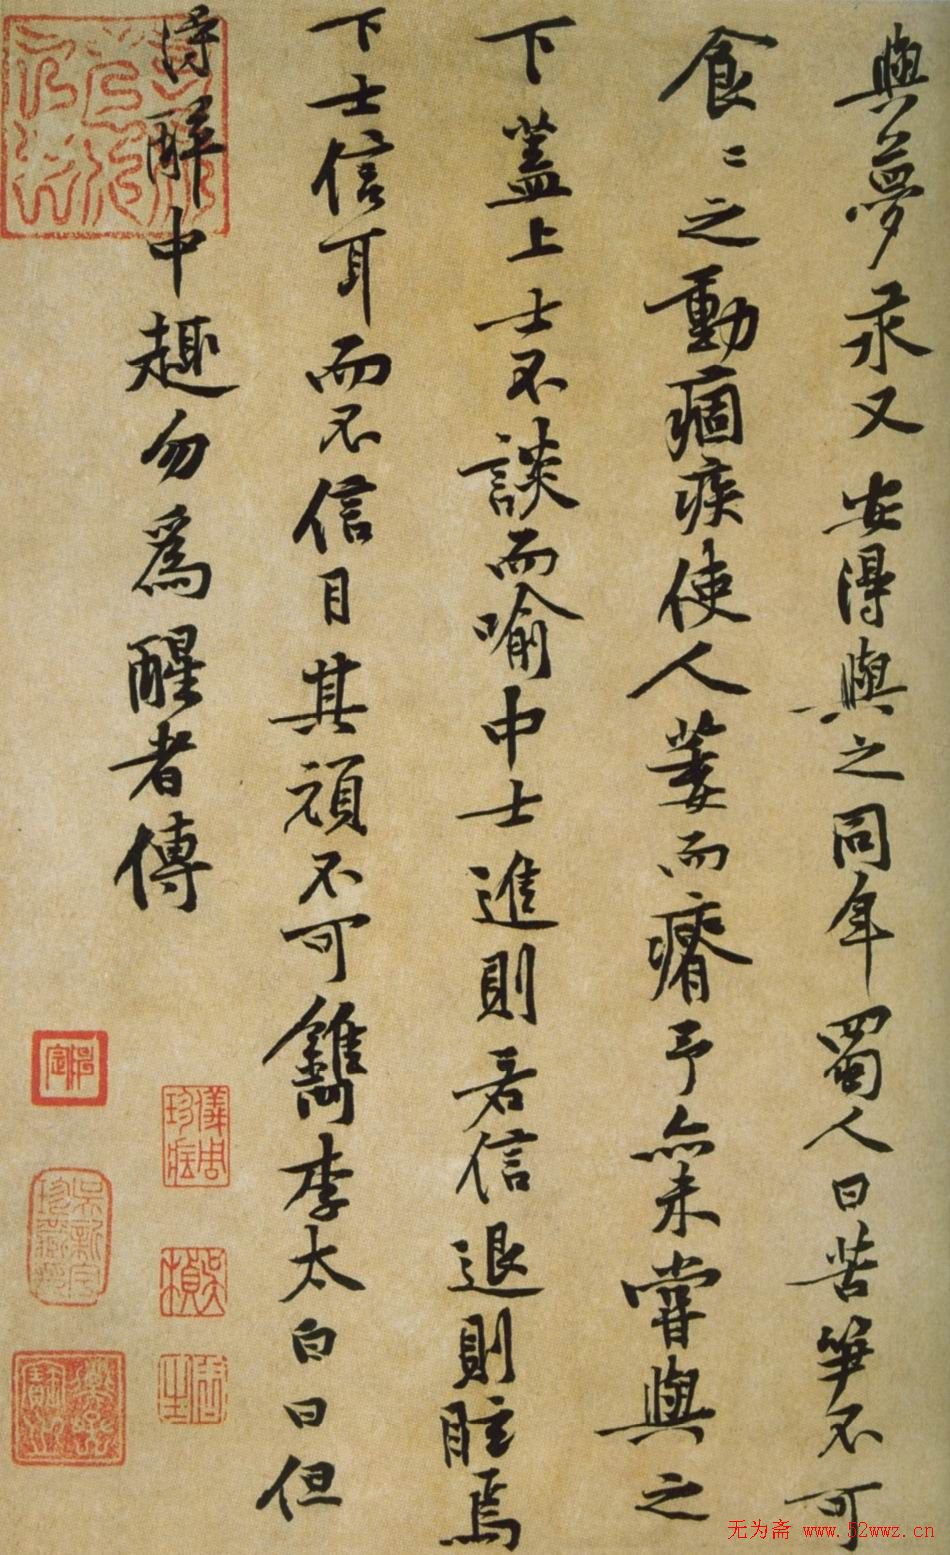 與夢永又安得與之同年蜀人曰苦笋不可
食〻之動痼疾使人萎而瘠予亦未嘗與之
下蓋上士不談而喻中士進則若信退則眩焉
下士信耳而不信目其頑不可鐫李太白曰但
得醉中趣勿爲醒者傳
儀周珍藏
吳新宇珍藏印
吳楨
无为斋 www.52wwz.cn